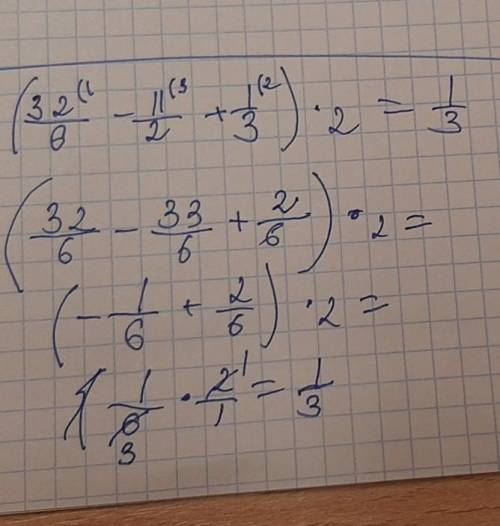 (32/6 (1 - 11/2 (3 + 1/3 (2) · 2 = 1/3
(32/6 - 33/6 + 2/6) · 2 =
(-1/6 + 2/6) · 2 =
1/6 3 · 2/1 1 = 1/3